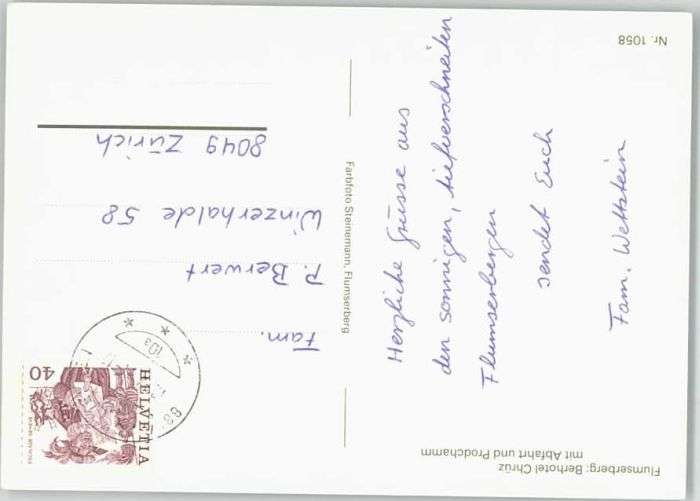 Flumserberg: Berhotel Chrüz
mit Abfahrt und Prodchamm
Herzliche Grüsse aus
den sonnigen, tiefverschneiten
Flumserbergen
sendet Euch
Fam. Wettstein
Nr. 1058
Farbfoto Steinemann, Flumserberg
HELVETIA
40
Fam.
P. Berwert
Winzerhalde 58
8049 Zürich